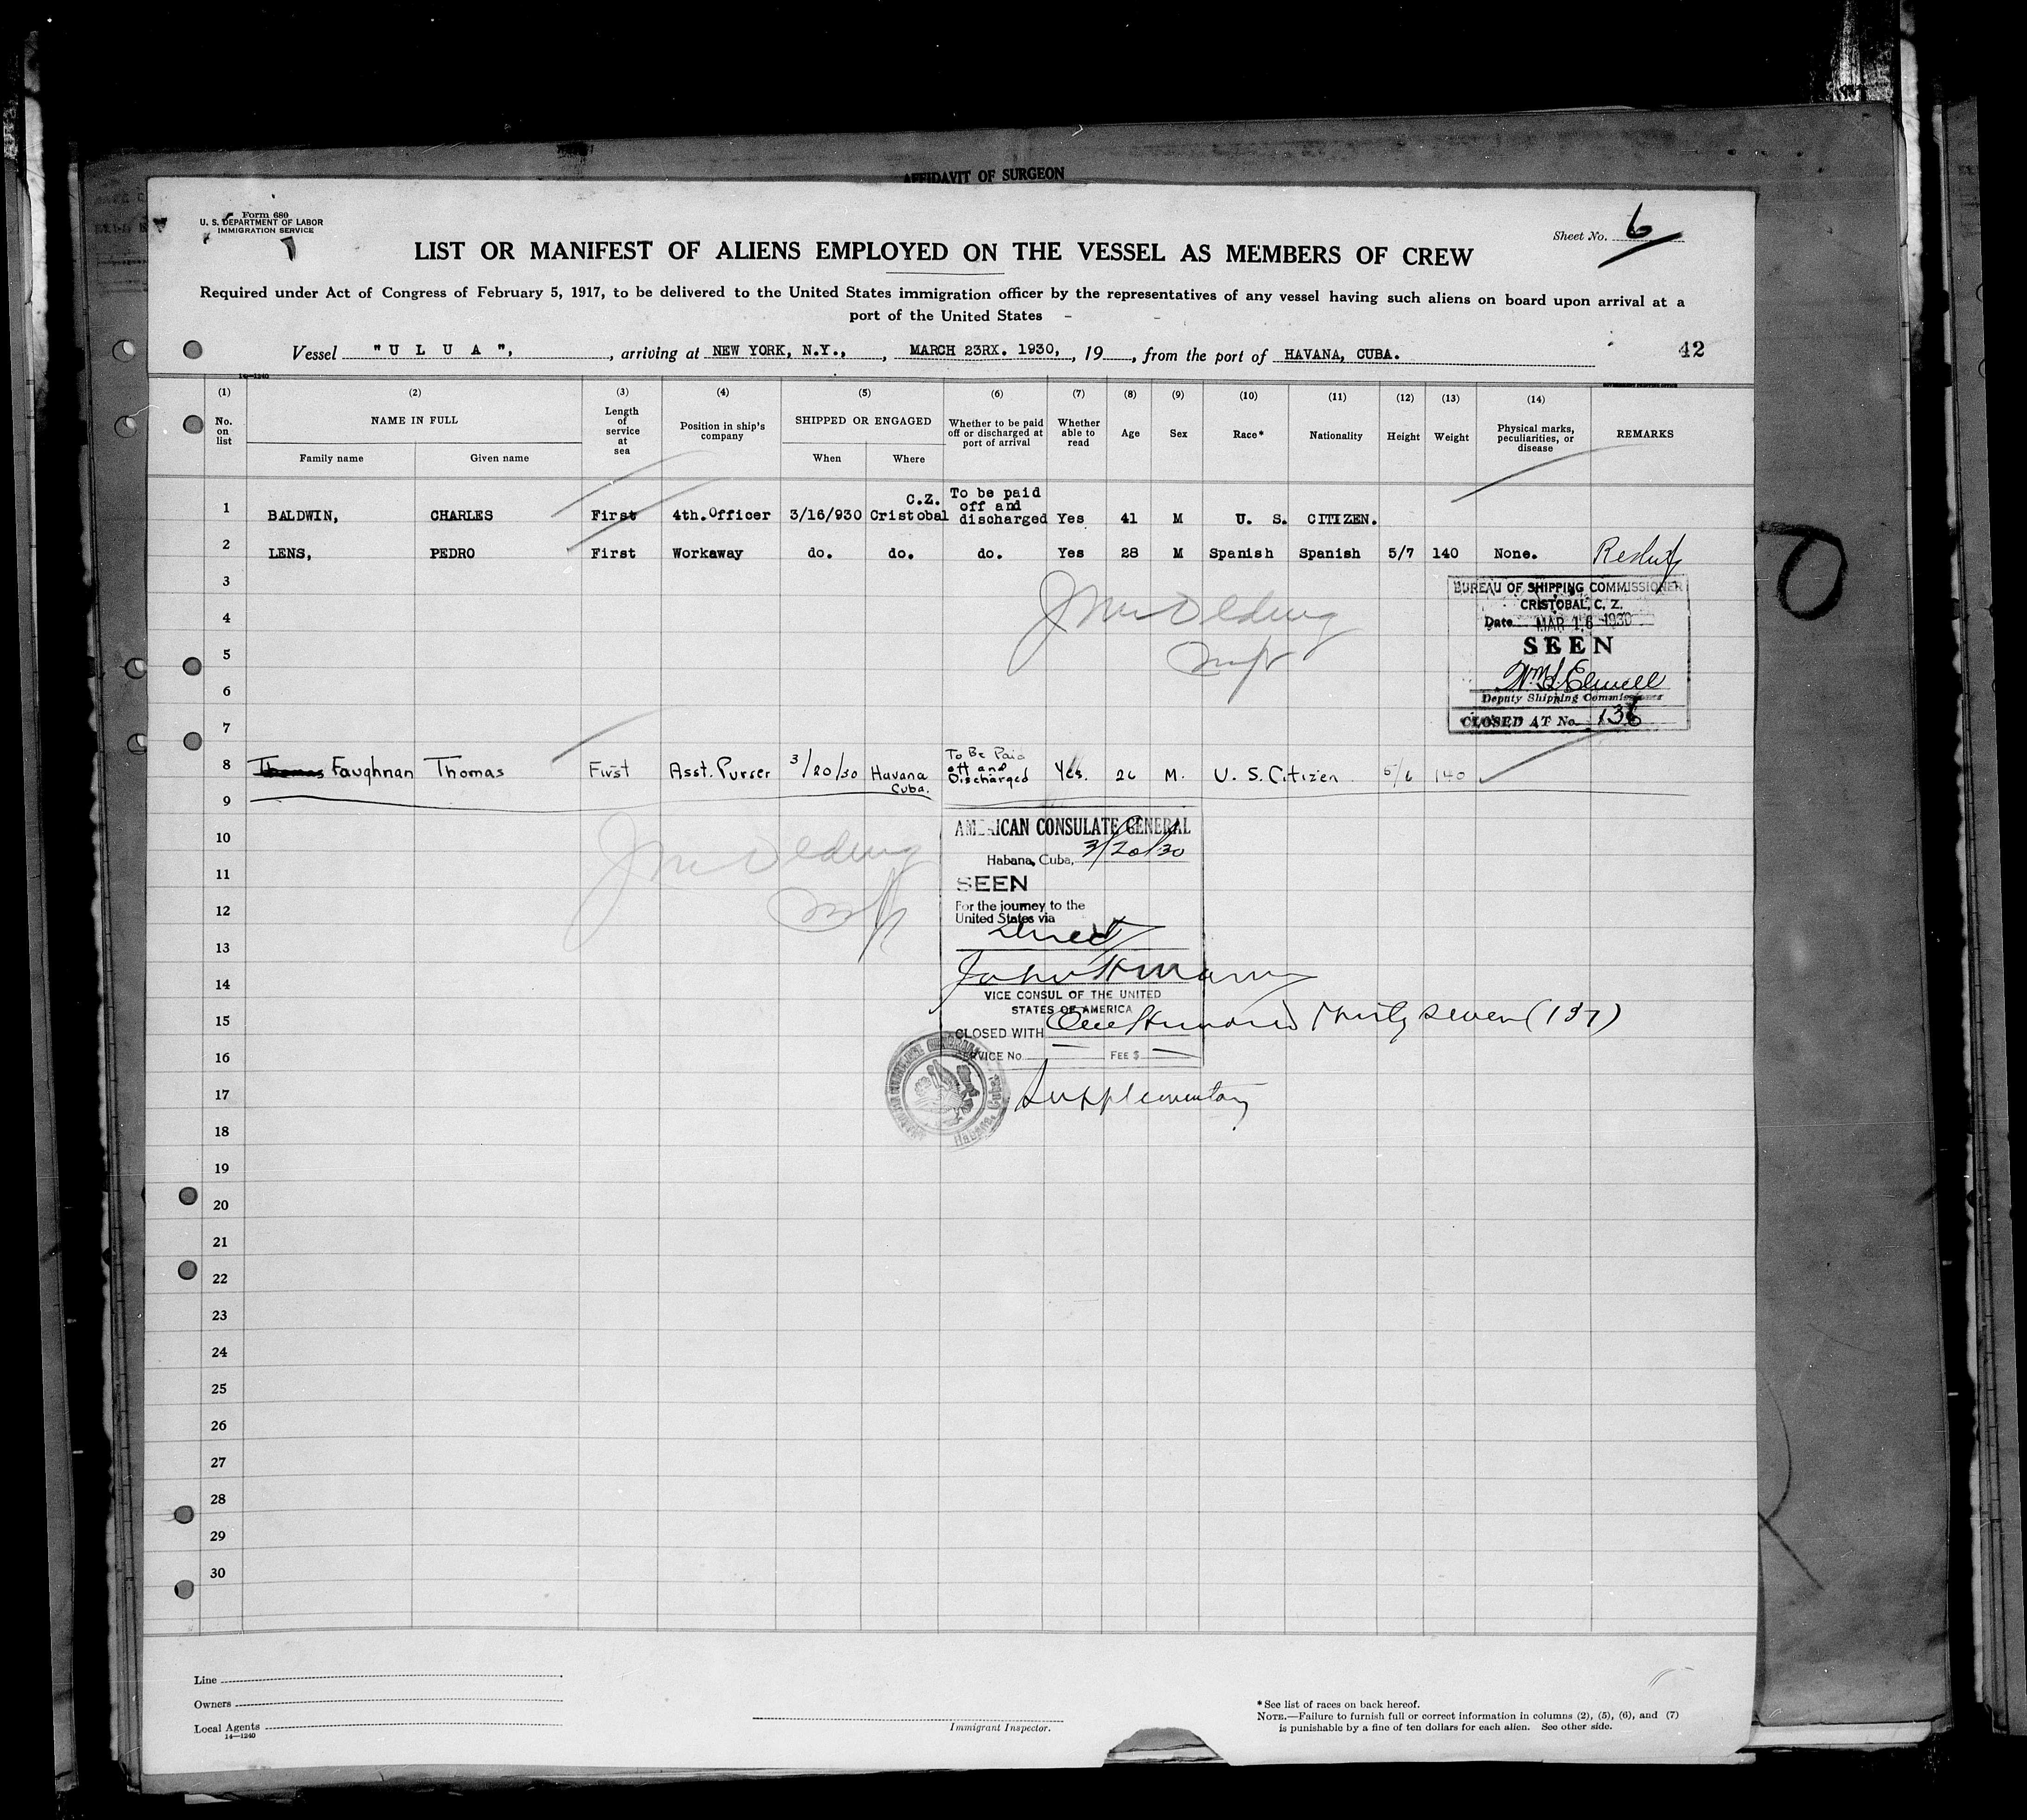 AFFIDAVIT OF SURGEON
Form 680
U. S. DEPARTMENT OF LABOR
IMMIGRATION SERVICE
Sheet No. 6
LIST OR MANIFEST OF ALIENS EMPLOYED ON THE VESSEL AS MEMBERS OF CREW
Required under Act of Congress of February 5, 1917, to be delivered to the United States immigration officer by the representatives of any vessel having such aliens on board upon arrival at a
port of the United States
Vessel "U L U A", , arriving at NEW YORK, N.Y., , MARCH 23RX. 1930, , 19 , from the port of HAVANA, CUBA.
42
14—1240
(1) (2) (3) (4) (5) (6) (7) (8) (9) (10) (11) (12) (13) (14)
No. on list NAME IN FULL Length of service at sea Position in ship's company SHIPPED OR ENGAGED Whether to be paid off or discharged at port of arrival Whether able to read Age Sex Race* Nationality Height Weight Physical marks, peculiarities, or disease REMARKS
Family name Given name When Where
1 BALDWIN, CHARLES First 4th. Officer 3/16/930 C.Z. Cristobal To be paid off and discharged Yes 41 M U. S. CITIZEN.
2 LENS, PEDRO First Workaway do. do. do. Yes 28 M Spanish Spanish 5/7 140 None.
3
4
5
6
7
BUREAU OF SHIPPING COMMISSIONER
CRISTOBAL, C. Z.
Date MAR 16 1930
SEEN
Deputy Shipping Commissioner
CLOSED AT No. 136
8 Thomas Faughnan Thomas First Asst. Purser 3/20/30 Havana Cuba. To Be Paid off and Discharged Yes. 26 M. U. S. Citizen 5/6 140
9
10
11
12
13
14
15
16
17
18
19
20
21
22
23
24
25
26
27
28
29
30
AMERICAN CONSULATE GENERAL
Habana, Cuba, 3/20/30
SEEN
For the journey to the
United States via
Direct
VICE CONSUL OF THE UNITED
STATES OF AMERICA
CLOSED WITH One Hundred Thirty Seven (137)
SERVICE No. — FEE $ —
Supplementary
Line
Owners
Local Agents
14—1240
Immigrant Inspector.
* See list of races on back hereof.
NOTE.—Failure to furnish full or correct information in columns (2), (5), (6), and (7)
is punishable by a fine of ten dollars for each alien. See other side.